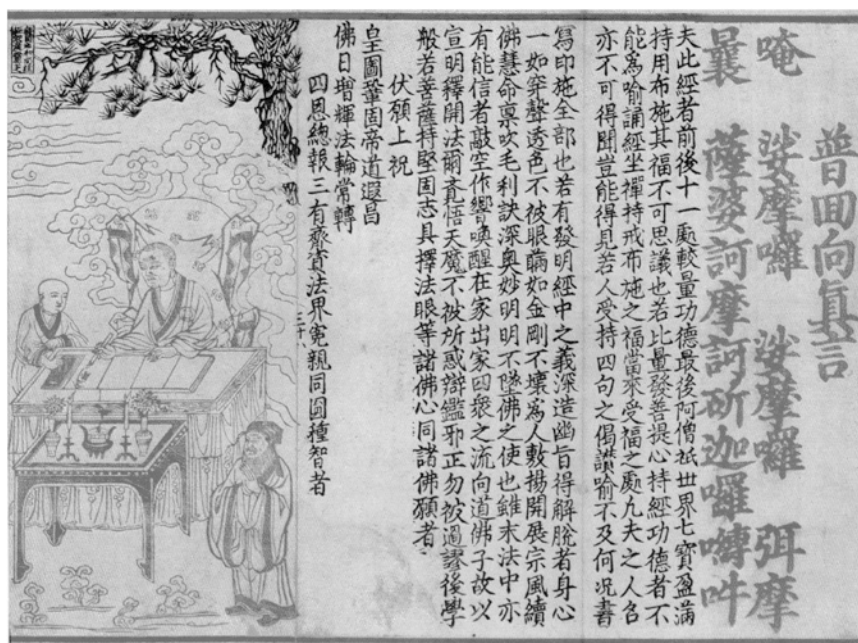 普回向真言
唵　娑摩囉　娑摩囉　弭摩
曩　薩婆訶摩訶斫迦囉嚩吽
夫此經者前後十一處較量功德最後阿僧祇世界七寶盈滿
持用布施其福不可思議也若比量發菩提心持經功德者不
能爲喻誦經坐禪持戒布施之福當來受福之處凡夫之人名
亦不可得聞豈能得見若人受持四句之偈讚喻不及何況書
寫印施全部也若有發明經中之義深造幽旨得解脫者身心
一如穿聲透色不被眼瞞如金剛不壞爲人敷揚開展宗風續
佛慧命稟吹毛利訣深奧妙明明不墜佛之使也雖末法中亦
有能信者敲空作響喚醒在家出家四衆之流向道佛子故以
宣明釋開法爾竟悟天魔不被所惑辯鑑邪正勿被過謬後學
般若菩薩持堅固志具擇法眼等諸佛心同諸佛願者
伏願上祝
皇圖鞏固帝道遐昌
佛日增輝法輪常轉
四恩總報三有齊資法界寃親同圓種智者